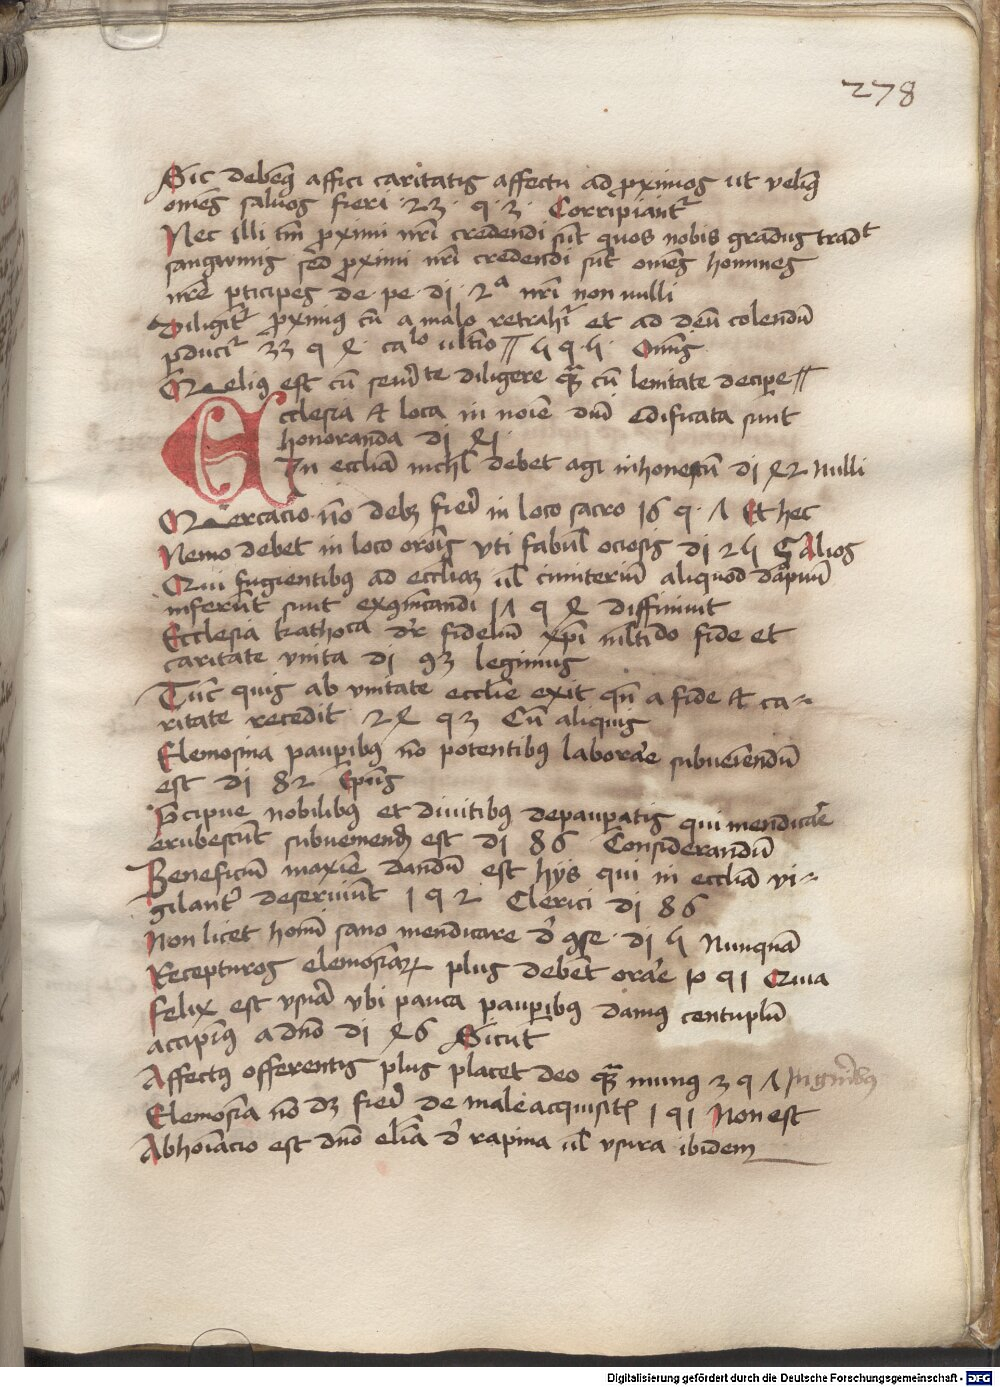 278
Sic debem9 affici caritatis affectu ad pximos ut velim9
omes saluos fieri · 23 · q · 3 · Corripiant
Nec illi tm pximi nri credendi sut quos nobis gradus tradt
sangwinis sed pximi nri credendi sut omes homines
nre pticipes de · pe · di · 2a nri non nulli
Diligit pximus cu a malo retrahit et ad deu colendu
pducit 33 q 4 calo ultio 5 q 5 Omis
Melius est cu seuitate diligere qm cu lenitate decipe
Ecclesia et loca in noie dni edificata sunt
honoranda di 41
In ecclia nichl debet agi inhonestu di 42 Nulli
Mercacio no debz fieri in loco sacro 16 q · 7 Et hec
Nemo debet in loco orois vti fabul ociosis di 25 § Alios
Qui fugientibus ad eccliam ul cimiterium aliquod dapnum
inferut sunt excomicandi 17 q 4 diffiniuit
Ecclesia kathoca dr fidelium xpi mltido fide et
caritate vnita di 93 legimus
Tuc quis ab vnitate ecclie exit qn a fide et ca-
ritate recedit · 24 q 3 Cu aliquis
Elemosina paupibus no potentibus laborare subueiendu
est di 82 Epus
Pcipue nobilibus et diuitibus depaupatis qui mendicare
erubescut subueniend est di 86 Considerandu
Beneficiu maxime dandu est hijs qui in ecclia vi-
gilanter deseruiunt 1 q 2 Clerici di 86
Non licet homi sano mendicare d 9se · di 5 Nunqua
Recepturos elemosiam plus debet orare 10 q 1 Quia
Felix est vsura vbi pauca paupibus damus centuplu
accipim9 a dno di 46 Sicut
Affectus offerentis plus placet deo qm munus 3 q 7 In gribus
Elemosia no dz fieri de male acquisitis 1 q 1 Non est
Abhoiacio est dno elia d rapina ul vsura ibidem
Digitalisierung gefördert durch die Deutsche Forschungsgemeinschaft - DFG